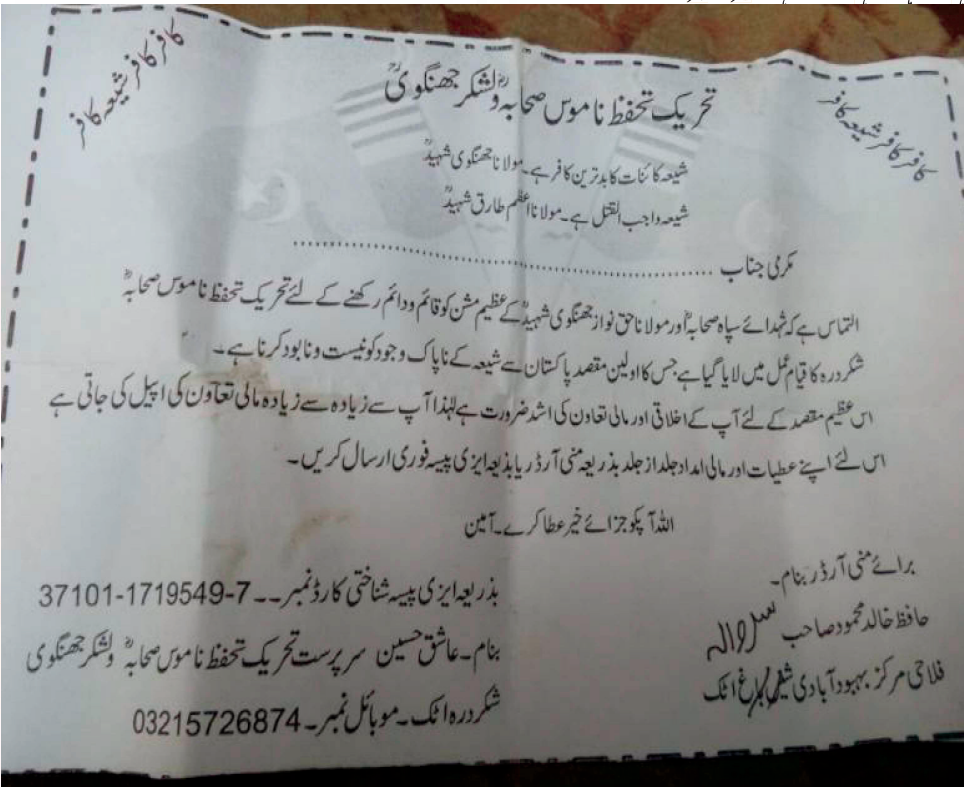 کافر کافر شیعہ کافر
کافر کافر شیعہ کافر
تحریک تحفظ ناموس صحابہؓ و لشکر جھنگویؒ
شیعہ کائنات کا بدترین کافر ہے۔ مولانا جھنگوی شہیدؒ
شیعہ واجب القتل ہے۔ مولانا اعظم طارق شہیدؒ
مکرمی جناب ........................................
التماس ہے کہ شہدائے سپاہ صحابہؓ اور مولانا حق نواز جھنگوی شہیدؒ کے عظیم مشن کو قائم و دائم رکھنے کے لئے تحریک تحفظ ناموس صحابہؓ
شکردرہ کا قیام عمل میں لایا گیا ہے جس کا اولین مقصد پاکستان سے شیعہ کے ناپاک وجود کو نیست و نابود کرنا ہے۔
اس عظیم مقصد کے لئے آپ کے اخلاقی اور مالی تعاون کی اشد ضرورت ہے لہٰذا آپ سے زیادہ سے زیادہ مالی تعاون کی اپیل کی جاتی ہے
اس لئے اپنے عطیات اور مالی امداد جلد از جلد بذریعہ منی آرڈر یا بذریعہ ایزی پیسہ فوری ارسال کریں۔
اللہ آپکو جزائے خیر عطا کرے۔ آمین
برائے منی آرڈر بنام۔
[withheld]
بذریعہ ایزی پیسہ شناختی کارڈ نمبر۔۔ [withheld]
بنام۔ [withheld] سرپرست تحریک تحفظ ناموس صحابہؓ و لشکر جھنگوی
شکردرہ اٹک۔ موبائل نمبر۔ [withheld]